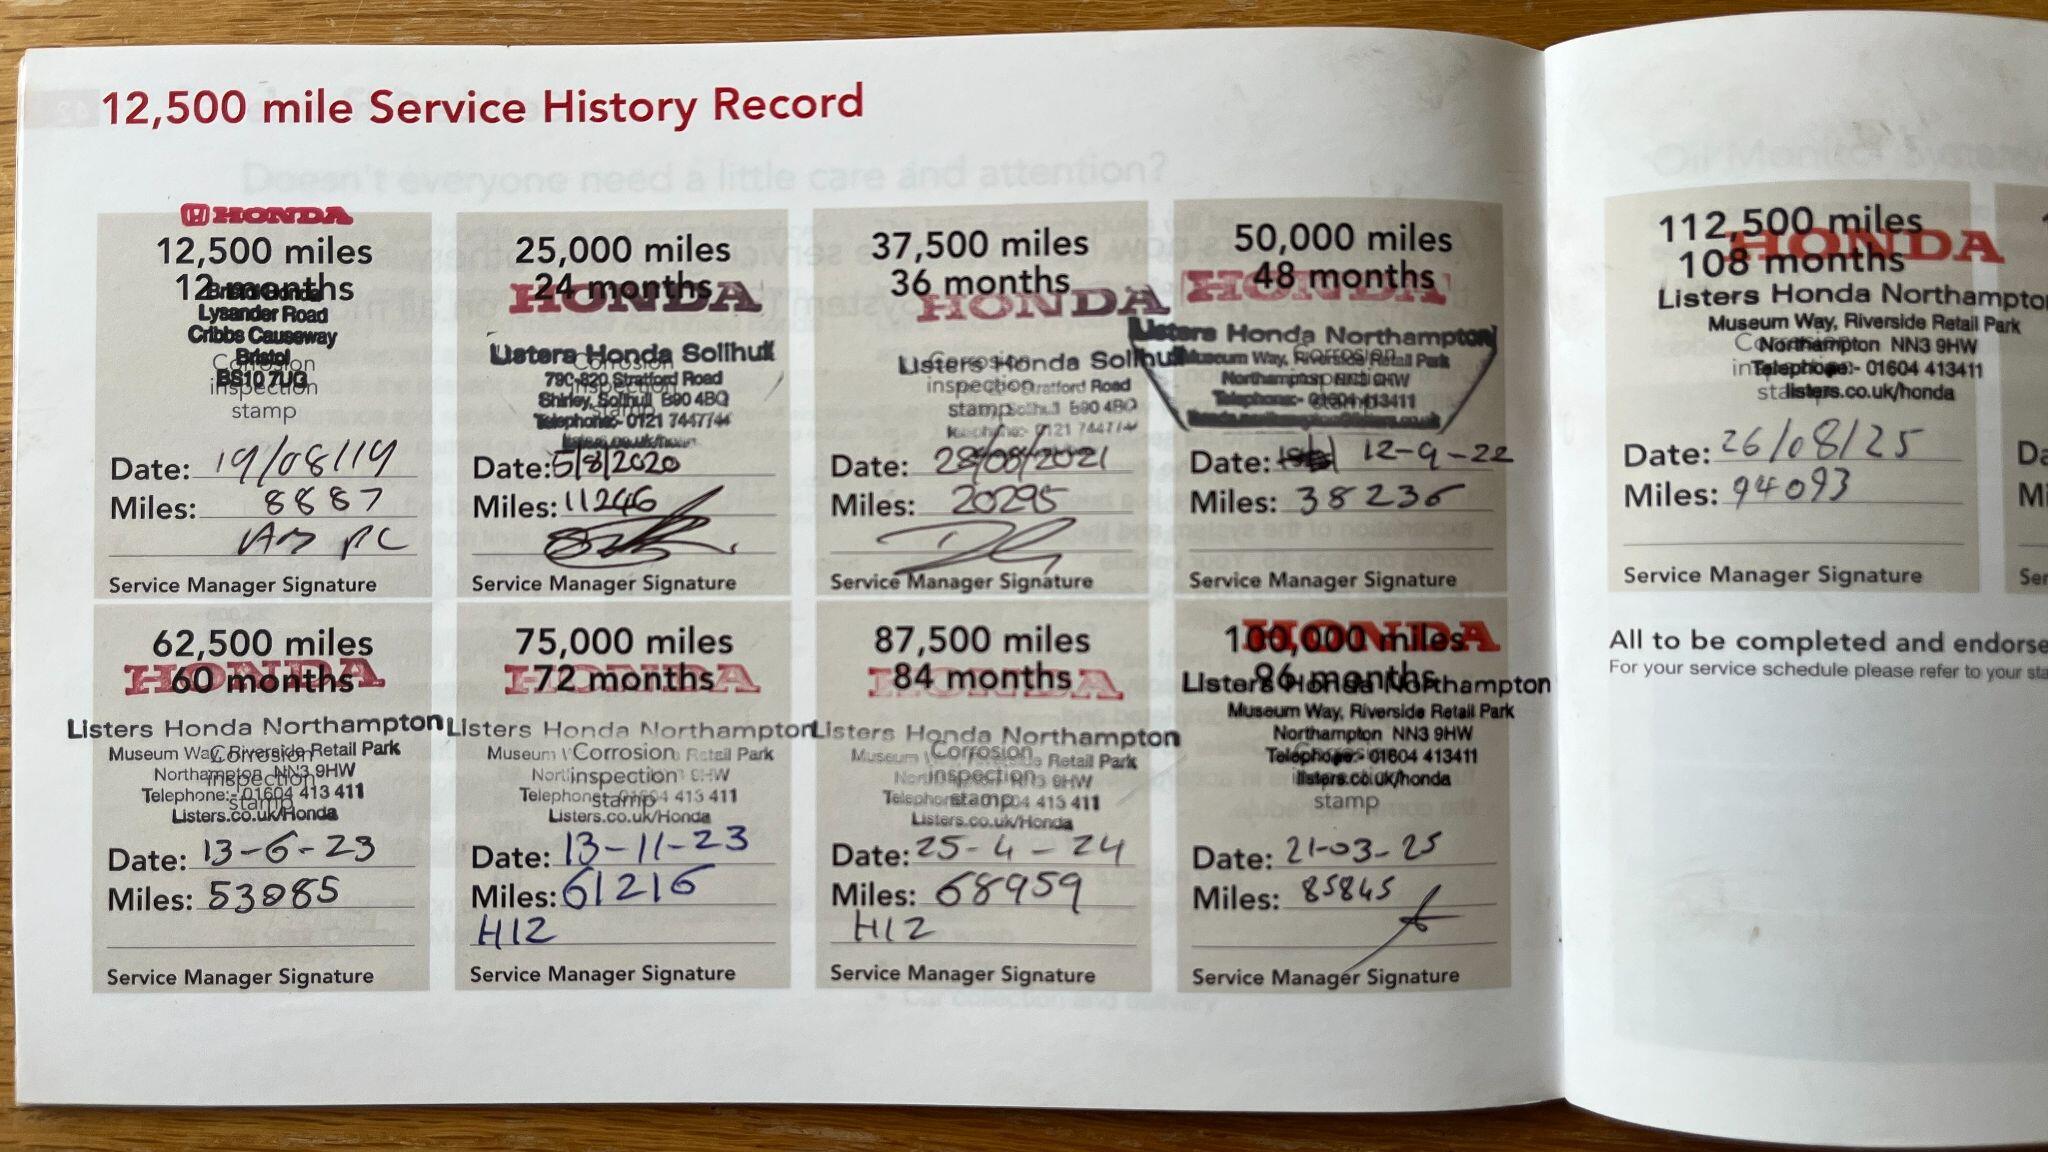 12,500 mile Service History Record
HONDA
12,500 miles
12 months
Lysander Road
Cribbs Causeway
Bristol
BS10 7UG
Corrosion
inspection
stamp
Date: 19/08/19
Miles: 8887
Service Manager Signature
25,000 miles
24 months
HONDA
Listers Honda Solihull
790-820 Stratford Road
Shirley, Solihull B90 4BQ
Telephone:- 0121 7447744
Date: 5/8/2020
Miles: 11246
Service Manager Signature
37,500 miles
36 months
HONDA
Listers Honda Solihull
Corrosion
inspection
Stratford Road
stamp
Solihull B90 4BQ
0121 7447744
Date: 28/08/2021
Miles: 20295
Service Manager Signature
50,000 miles
48 months
HONDA
Listers Honda Northampton
Museum Way, Riverside Retail Park
Northampton
Telephone:- 01604 413411
Date: 12-9-22
Miles: 38236
Service Manager Signature
62,500 miles
60 months
HONDA
Listers Honda Northampton
Museum Way, Riverside Retail Park
Corrosion
Northampton NN3 9HW
inspection
Telephone:- 01604 413 411
stamp
Listers.co.uk/Honda
Date: 13-6-23
Miles: 53085
Service Manager Signature
75,000 miles
72 months
HONDA
Listers Honda Northampton
Museum Corrosion Retail Park
inspection
Telephone 01604 413 411
stamp
Listers.co.uk/Honda
Date: 13-11-23
Miles: 61216
H12
Service Manager Signature
87,500 miles
84 months
HONDA
Listers Honda Northampton
Corrosion
Museum Retail Park
inspection NN3 9HW
stamp
413 411
Listers.co.uk/Honda
Date: 25-4-24
Miles: 68959
H12
Service Manager Signature
100,000 miles
HONDA
96 months
Listers Honda Northampton
Museum Way, Riverside Retail Park
Northampton NN3 9HW
Telephone:- 01604 413411
listers.co.uk/honda
stamp
Date: 21-03-25
Miles: 85845
Service Manager Signature
112,500 miles
HONDA
108 months
Listers Honda Northampto
Museum Way, Riverside Retail Park
Northampton NN3 9HW
Telephone:- 01604 413411
listers.co.uk/honda
Date: 26/08/25
Miles: 94093
Service Manager Signature
Da
Mi
Ser
All to be completed and endorse
For your service schedule please refer to your sta